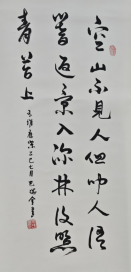 空山不見人但聞人語
響返景入深林復照
青苔上
王維鹿柴